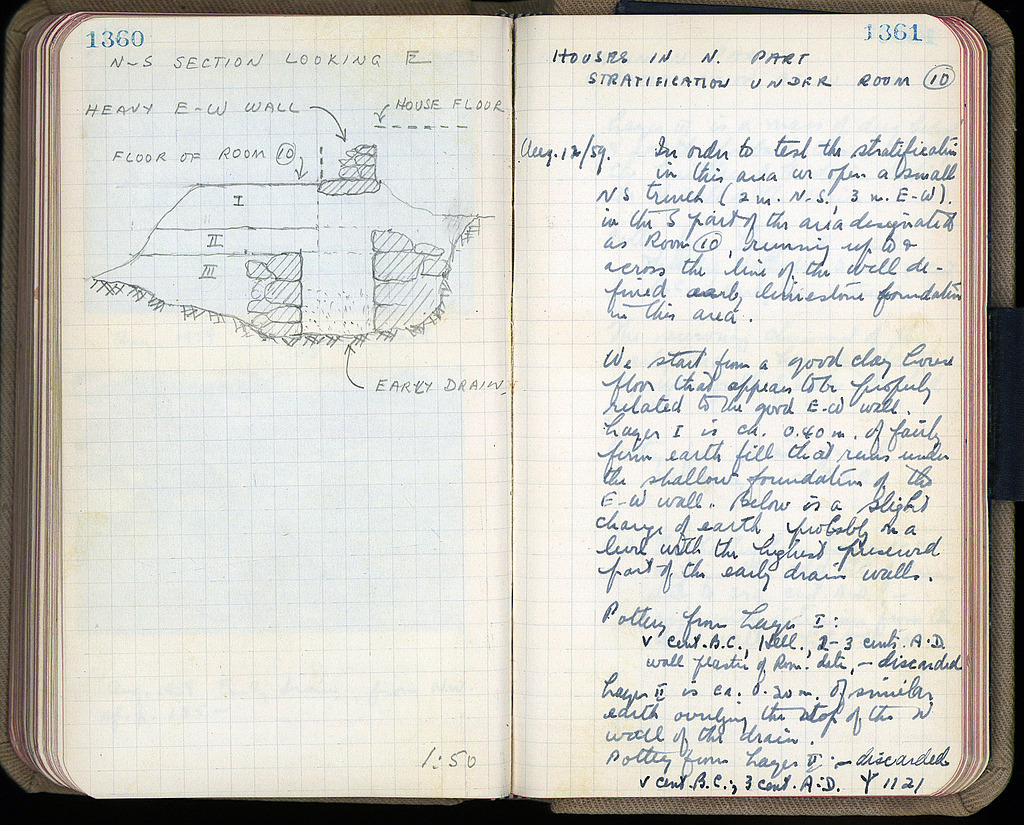 1360
N-S SECTION LOOKING E
HEAVY E-W WALL
HOUSE FLOOR
FLOOR OF ROOM 10
I
II
III
EARLY DRAIN
1:50
1361
HOUSES IN N. PART
STRATIFICATION UNDER ROOM 10
Aug. 12/59. In order to test the stratification
in this area we open a small
NS trench (2 m. N-S, 3 m. E-W).
in the S part of the area designated
as Room 10, running up to &
across the line of the wall de-
fined early limestone foundation
in this area.
We start from a good clay house
floor that appears to be properly
related to the good E-W wall.
Layer I is ca. 0.40 m. of fairly
firm earth fill that runs under
the shallow foundation of the
E-W wall. Below is a slight
change of earth, probably on a
level with the highest preserved
part of the early drain walls.
Pottery from Layer I:
V cent. B.C., Hell., 2-3 cents. A.D.
wall plaster of Rom. date, - discarded
Layer II is ca. 0.20 m. of similar
earth overlying the top of the N
wall of the drain.
Pottery from Layer II: - discarded
V cent. B.C.; 3 cent. A.D. 1121